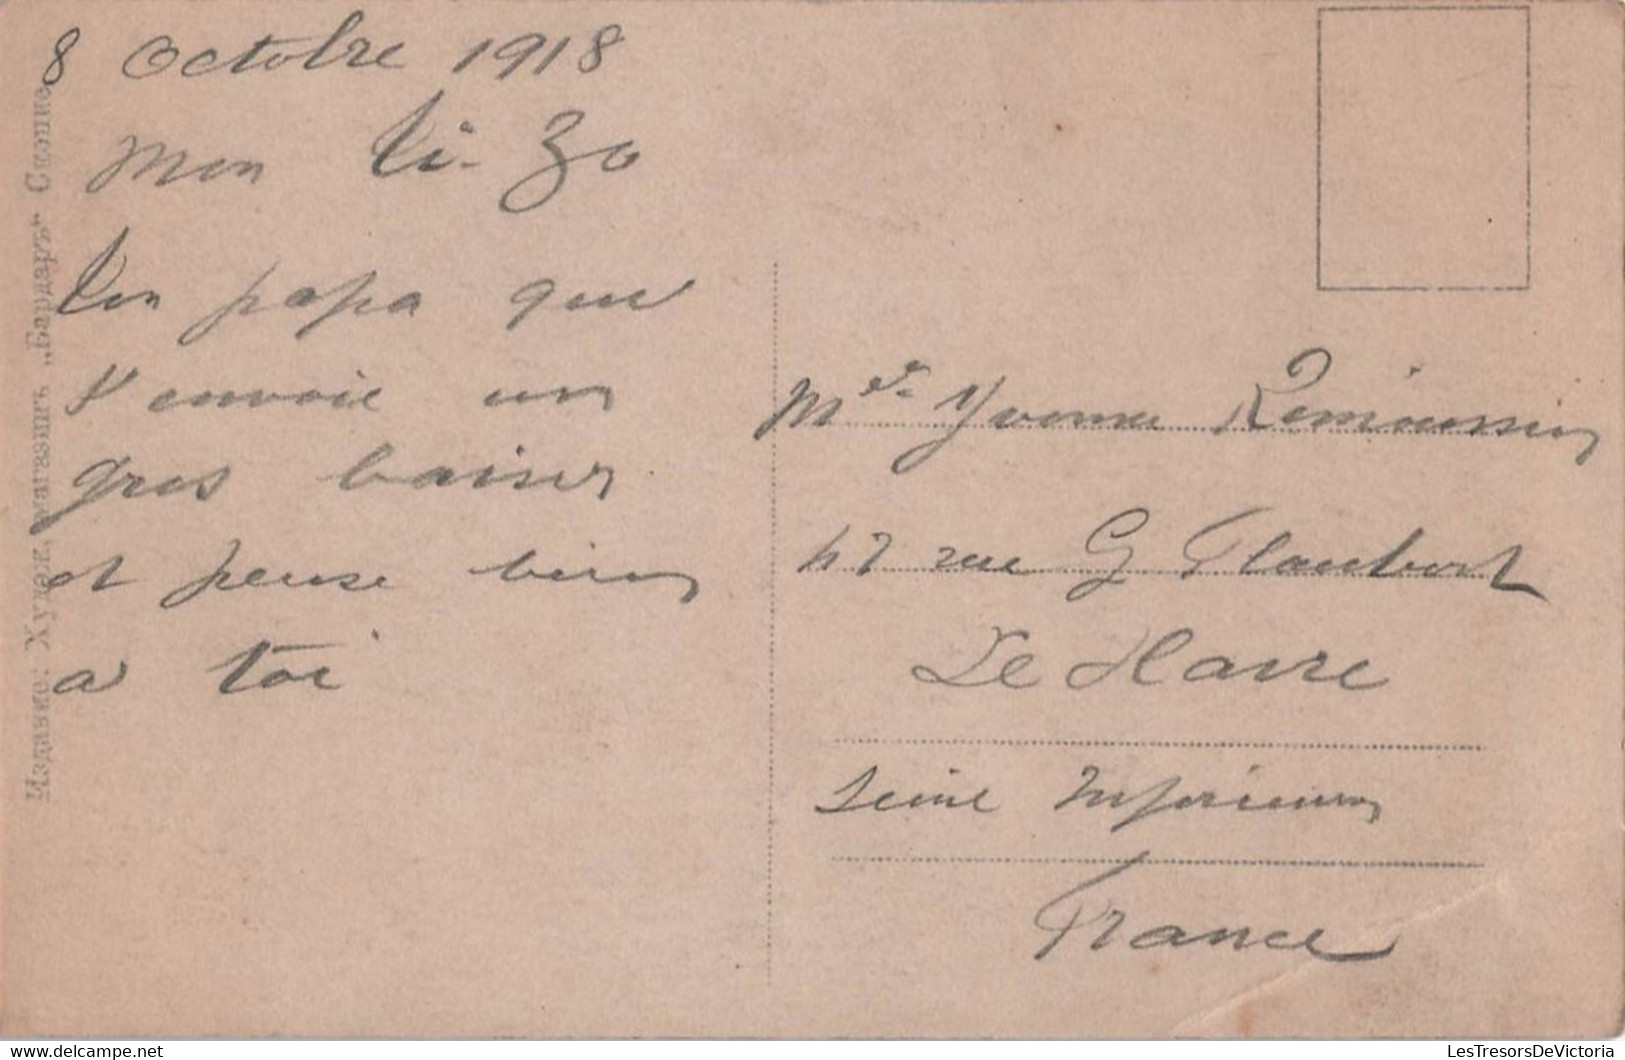 8 Octobre 1918
Mon ti-Zo
Ton papa qui
t'envoie un
gros baiser
et pense bien
a toi
Издание: Худож. магазинъ „Вардаръ“ Скопие
Melle Yvonne
47 rue G Flaubert
Le Havre
Seine Inferieure
France
LesTresorsDeVictoria